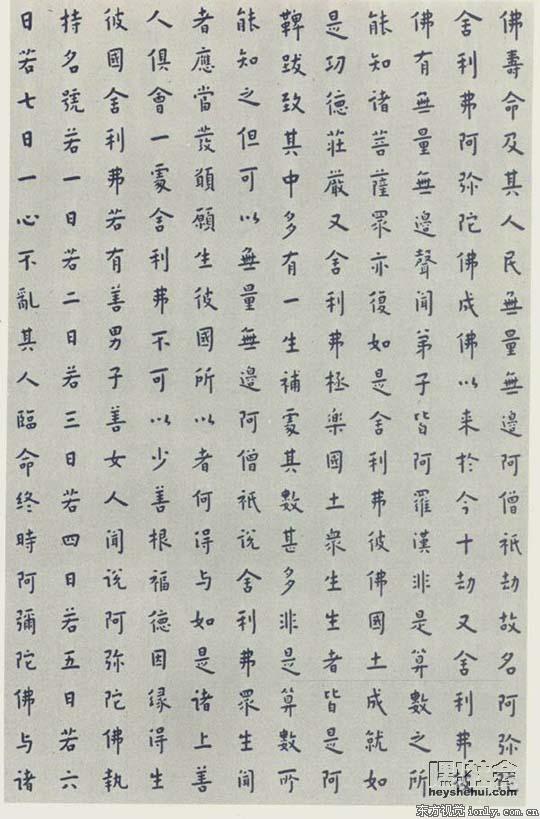 佛壽命及其人民無量無邊阿僧祇劫故名阿弥陀
舍利弗阿弥陀佛成佛以来於今十劫又舍利弗彼
佛有無量無邊聲聞弟子皆阿羅漢非是算數之所
能知諸菩薩眾亦復如是舍利弗彼佛國土成就如
是功德莊嚴又舍利弗極楽國土衆生生者皆是阿
鞞跋致其中多有一生補處其數甚多非是算數所
能知之但可以無量無邊阿僧祇說舍利弗眾生聞
者應當發願願生彼國所以者何得与如是諸上善
人俱會一處舍利弗不可以少善根福德因緣得生
彼國舍利弗若有善男子善女人聞說阿弥陀佛執
持名號若一日若二日若三日若四日若五日若六
日若七日一心不亂其人臨命終時阿彌陀佛与諸
heyshehui.com
东方视觉 ionly.com.cn